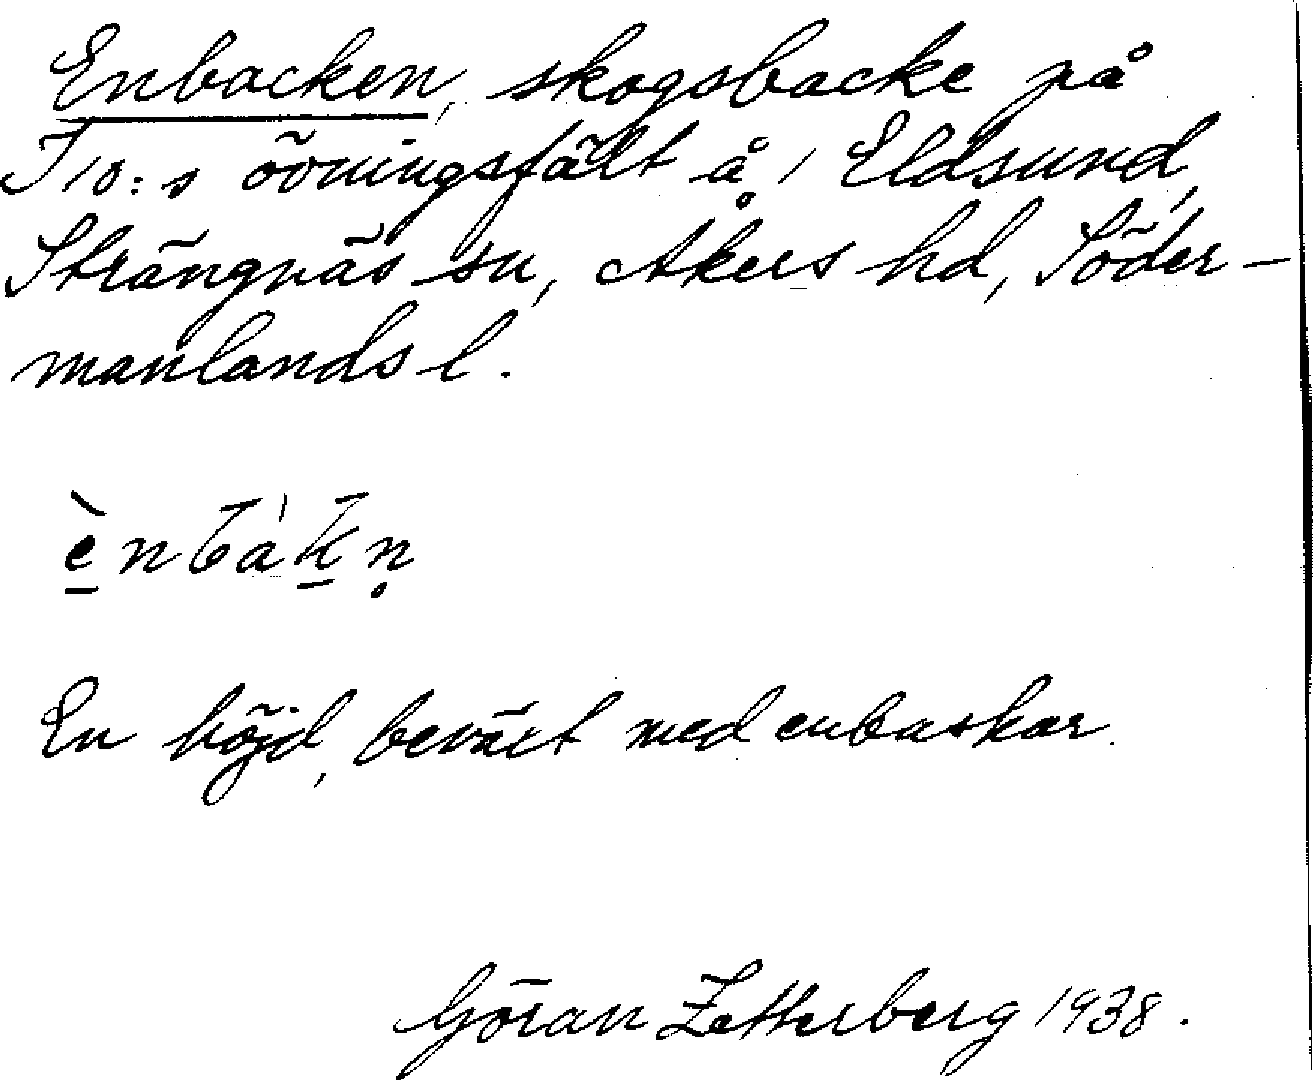 Enbacken, skogsbacke på
I 10:s övningsfält å 1 Eldsund,
Strängnäs sn, Åkers hd, Söder-
manlands l.
En höjd, beväxt med enbuskar.
Göran Zetterberg 1938.